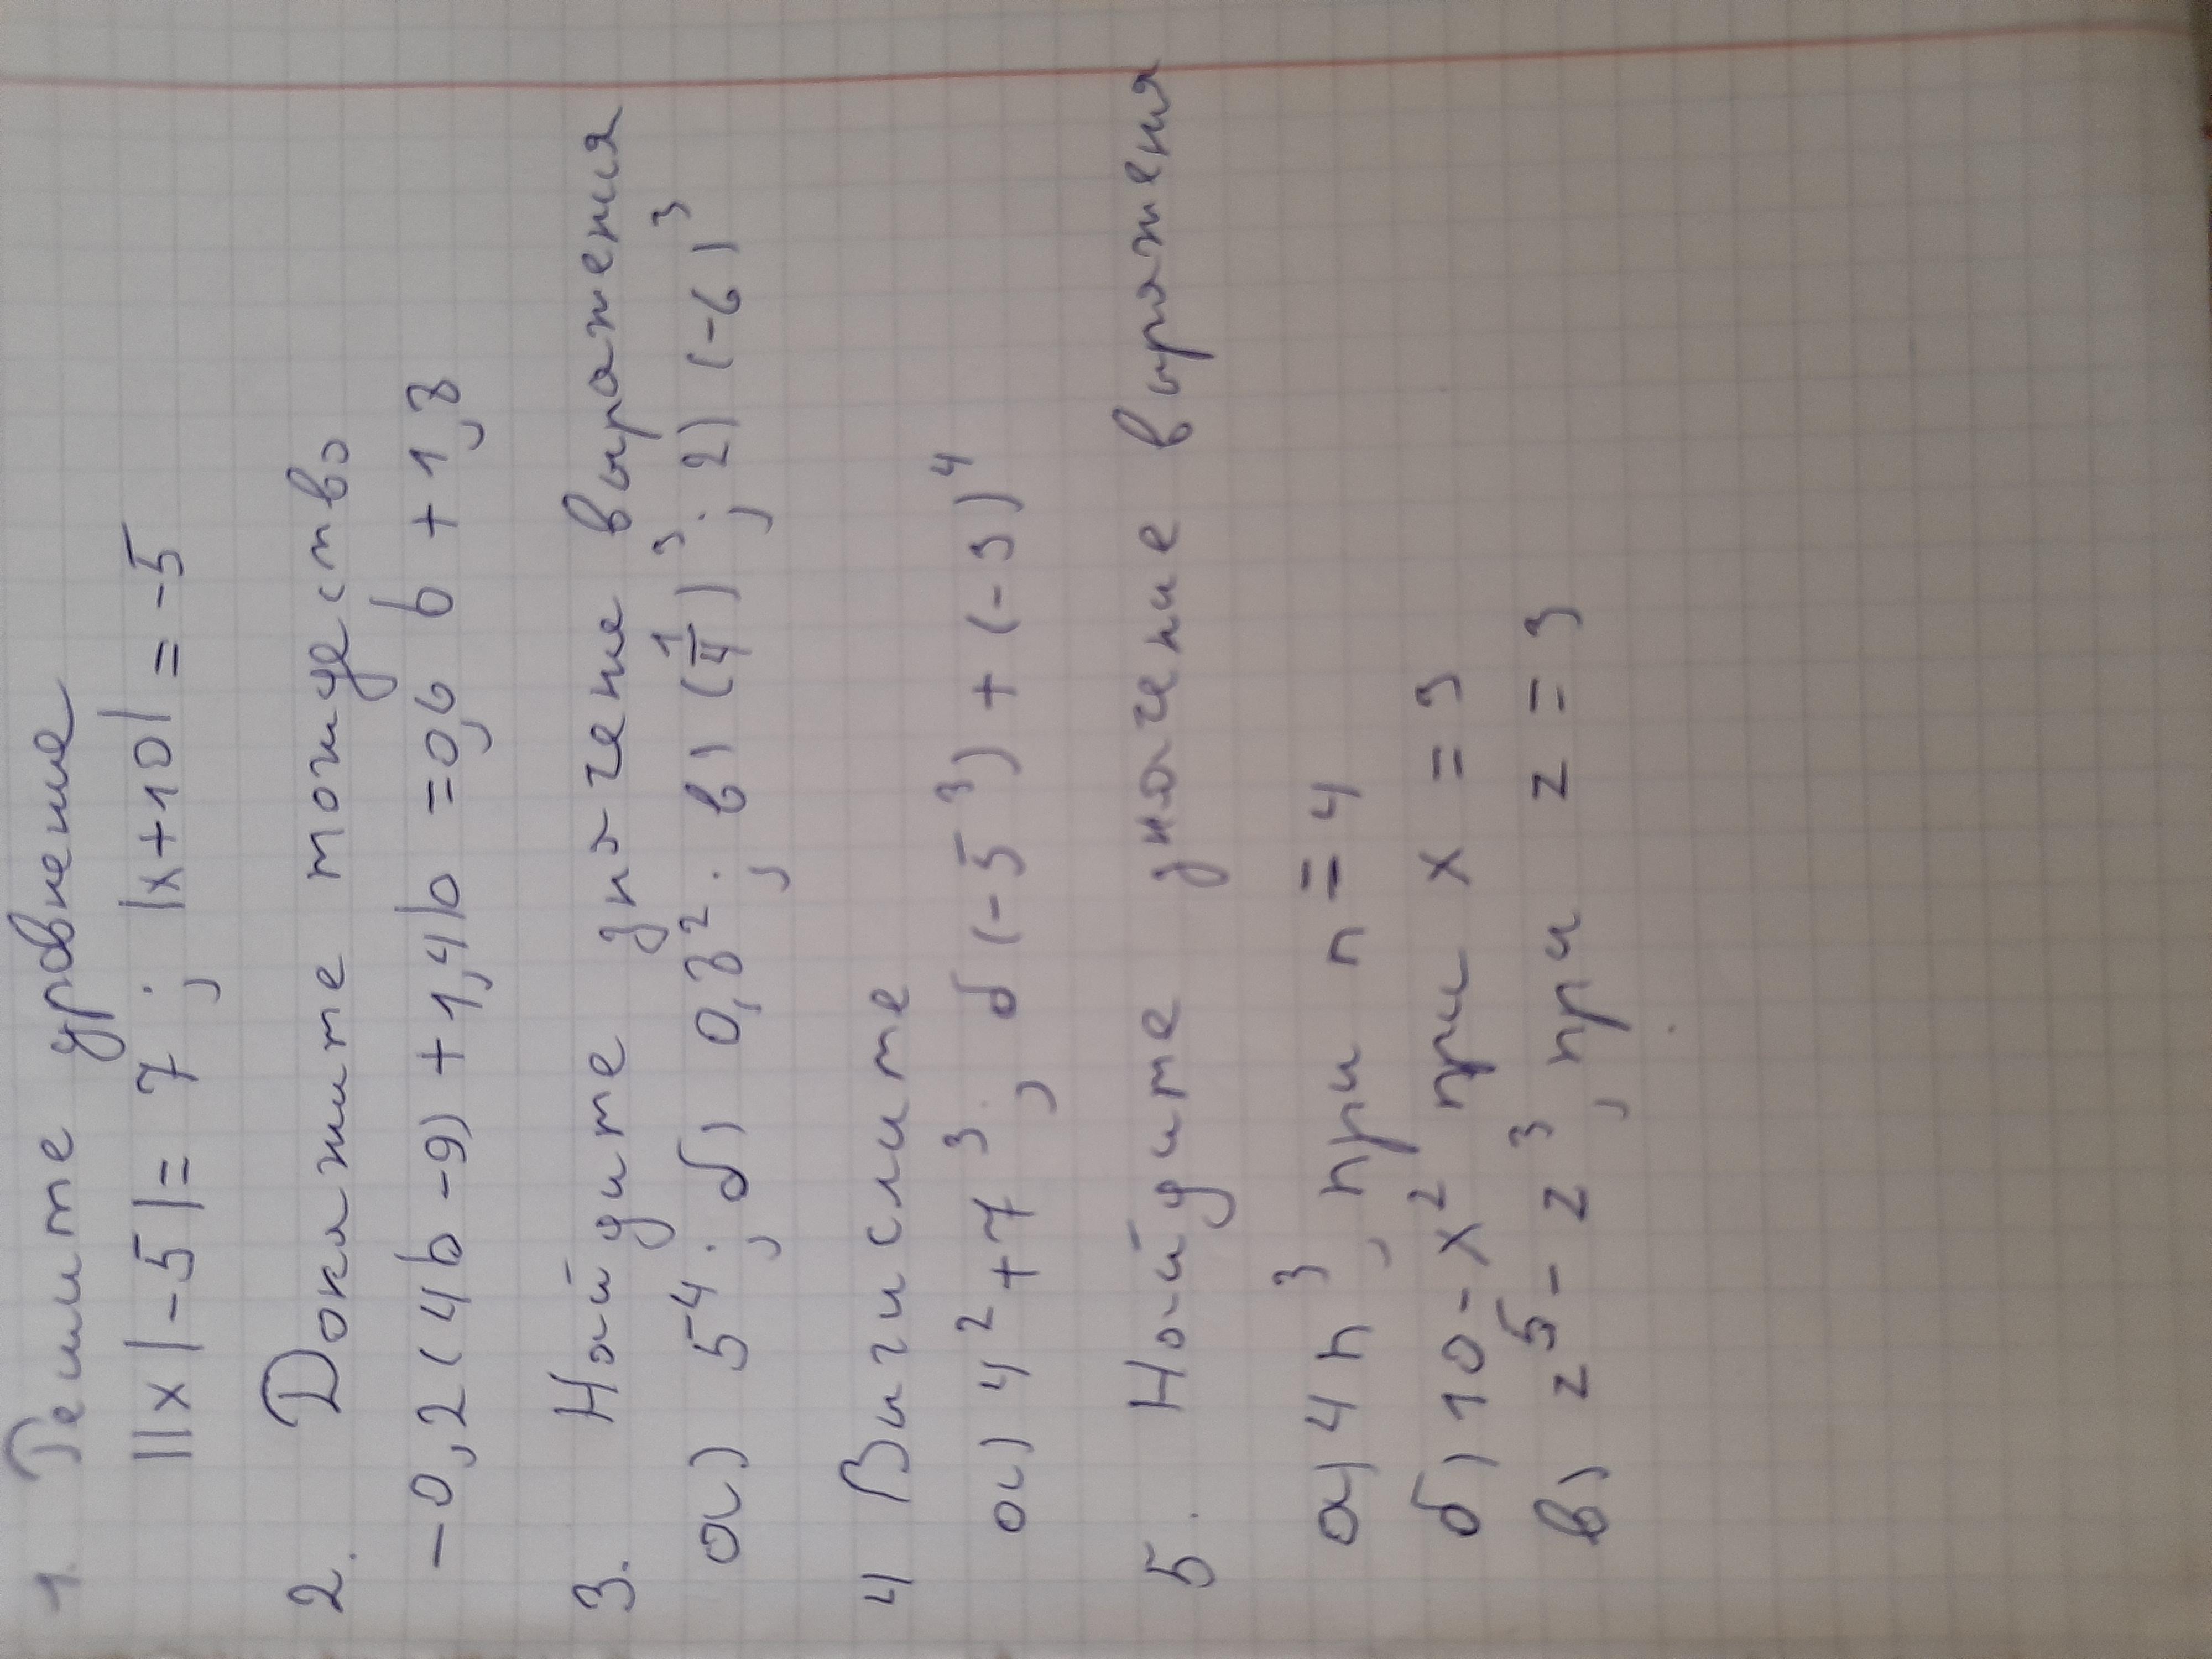 1. Решите уровнение
||x|-5|= 7 ; |x+10|=-5
2. Докажите тождество
-0,2(4b-9)+1,4b=0,6 b+1,8
3. Найдите значение выражения
а) 5⁴; б) 0,8²; в) (1/4)³; г) (-6)³
4 Вычислите
а) 4²+7³; б(-5³)+(-3)⁴
5. Найдите значение выражения
а) 4n³, при n=4
б) 10-x² при x=3
в) z⁵-z³, при z=3